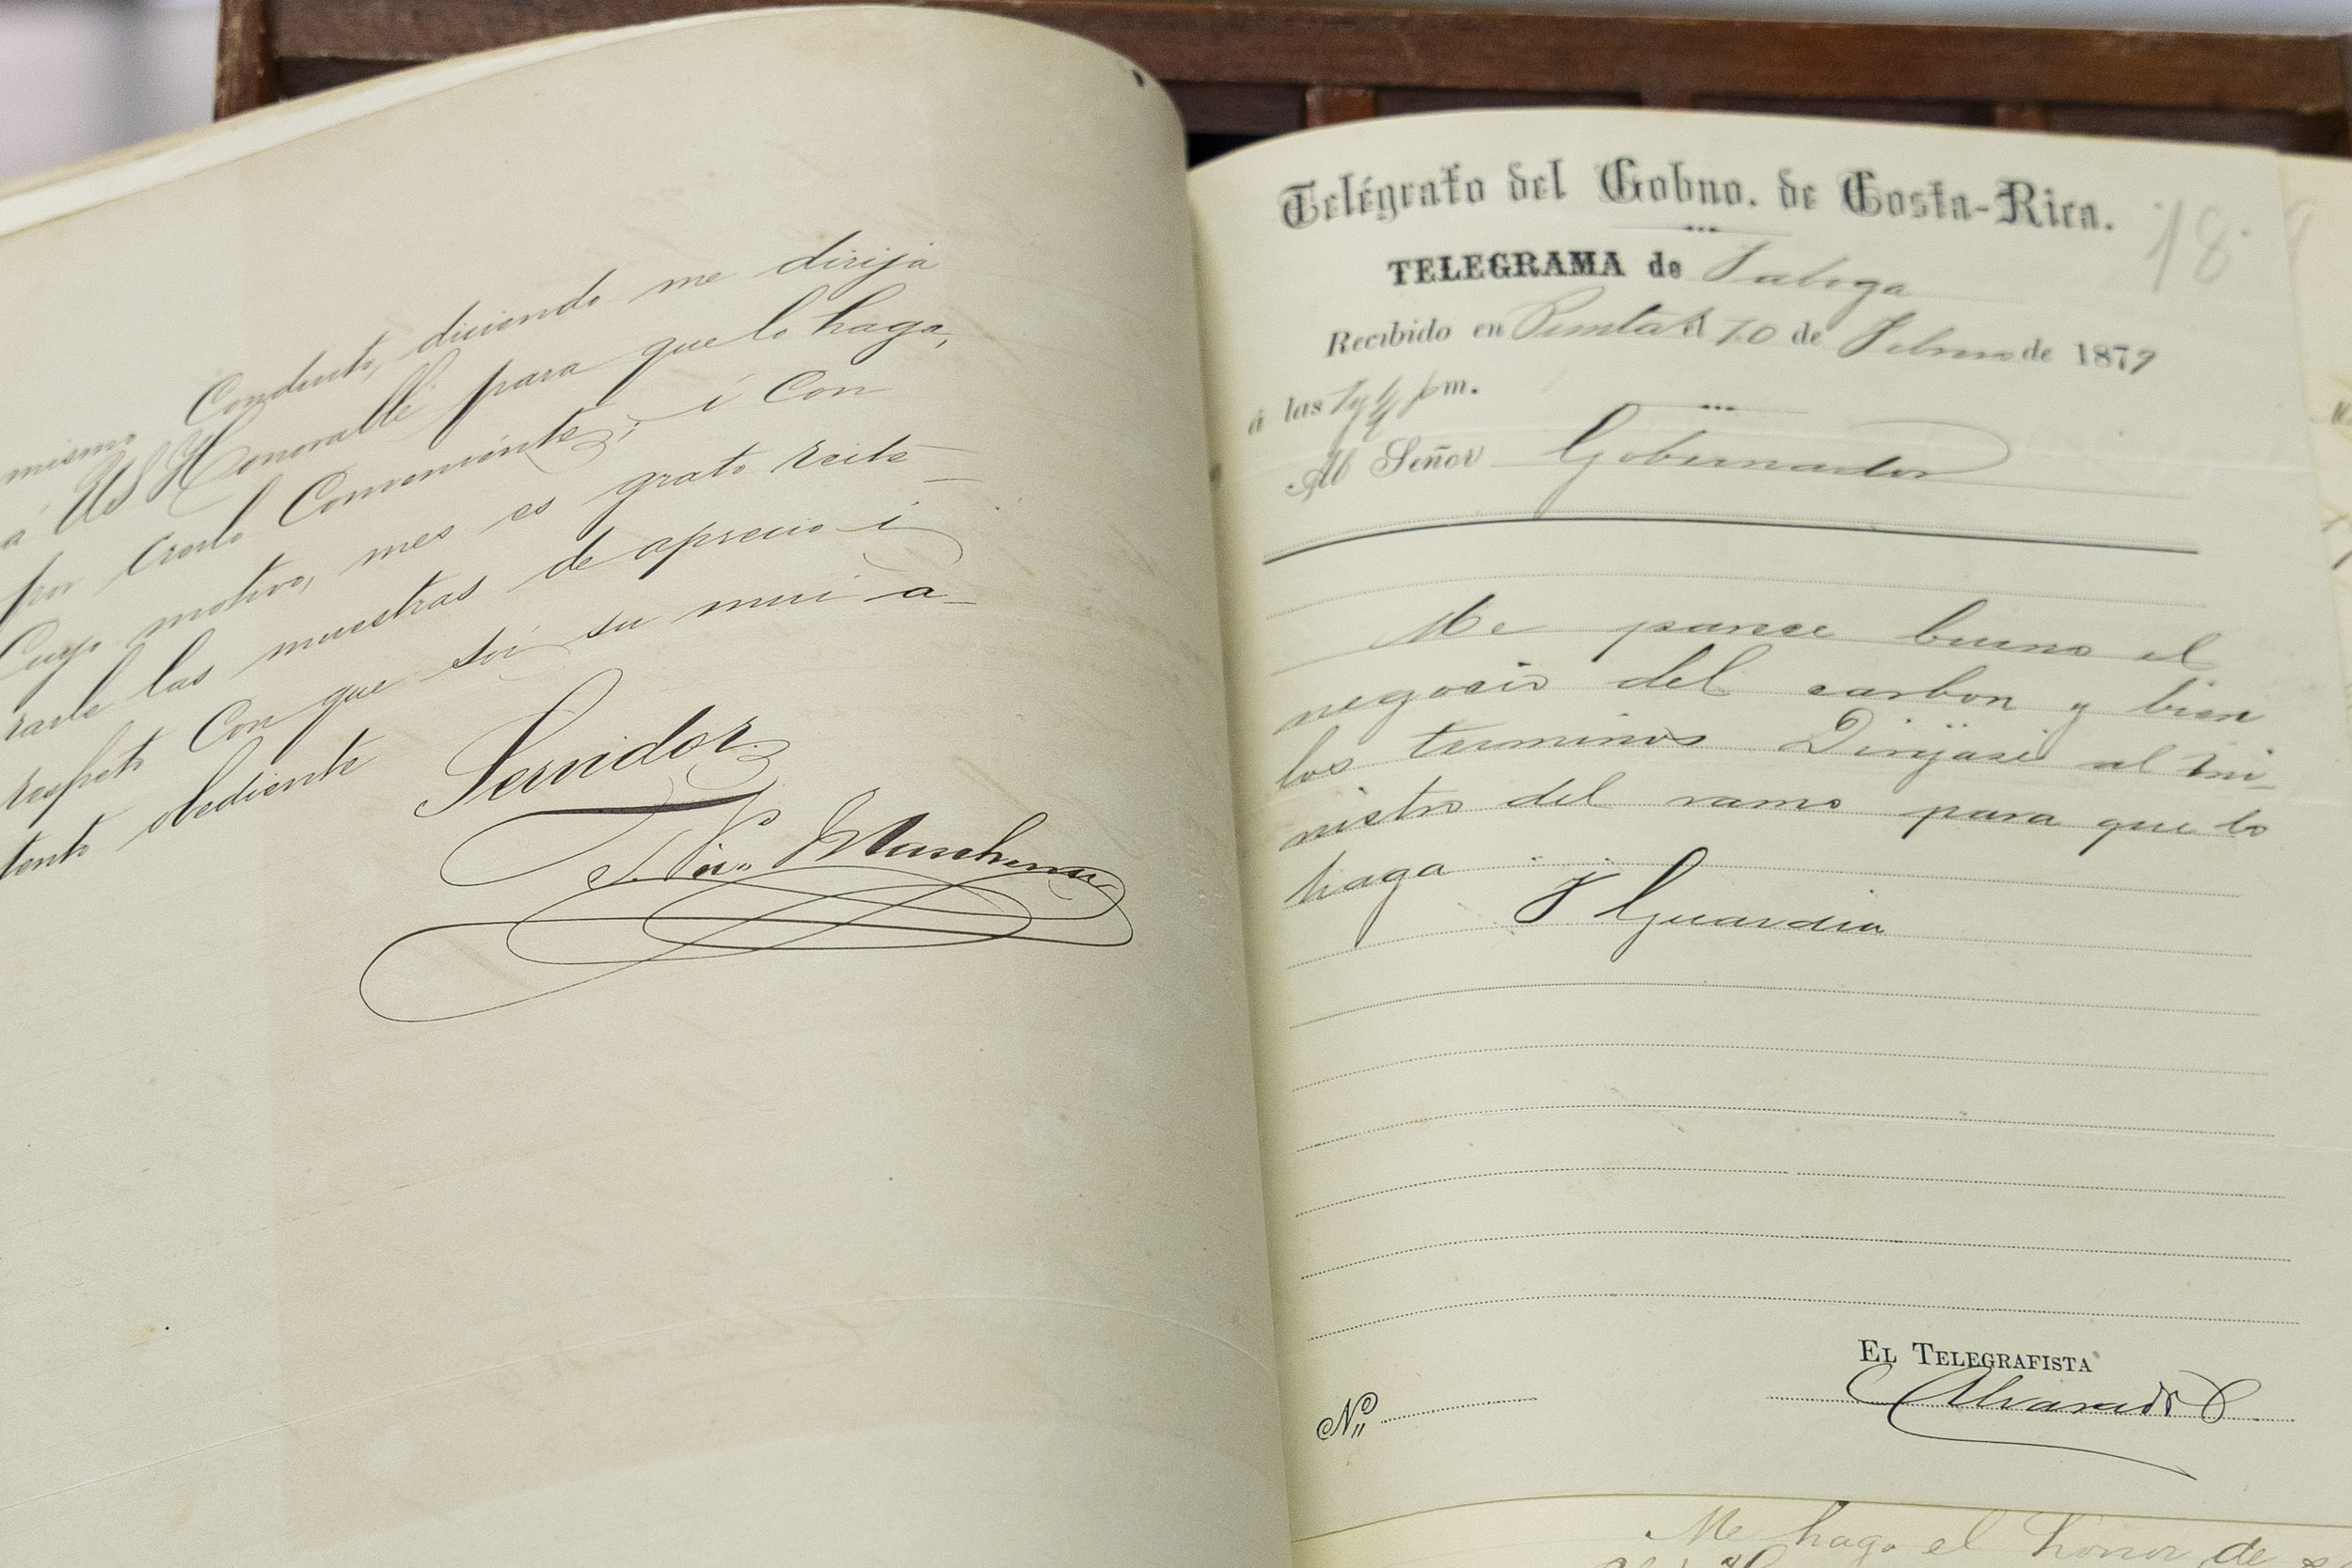 mismo Conducto, diciendo me dirija
á US Honorable para que lo haga,
por creerlo Conveniente; i Con
Cuyo motivo, mes es grato reite-
rarle las muestras de aprecio i
respeto Con que soi su mui a-
tento obediente
Servidor.
Telégrafo del Gobno. de Costa-Rica.
18
TELEGRAMA de Taboga
Recibido en Puntas el 10 de Febrero de 1879
á las pm.
Al Señor Gobernador
Me parece bueno el
negocio del carbon y bien
los terminos Dirijase al mi-
nistro del ramo para que lo
haga
T Guardia
EL TELEGRAFISTA
Nº
Alvarado
Me hago el honor de